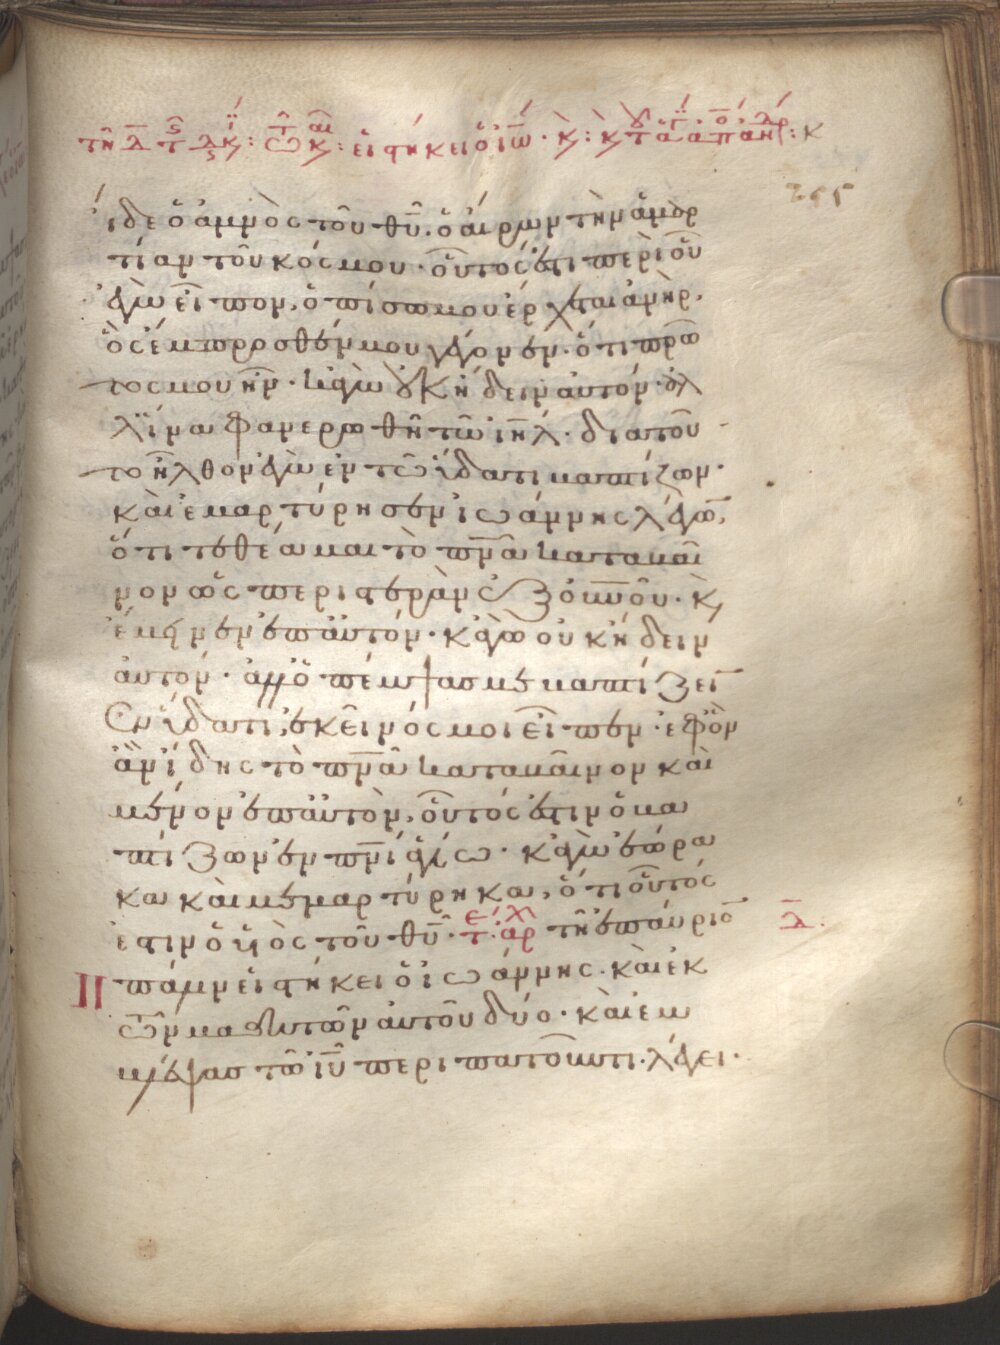 255
ἴδε ὁ ἀμνὸς τοῦ θῦ. ὁ αἴρων τὴν ἁμαρ
τίαν τοῦ κόσμου. οὗτός ἐστι περὶ οὗ
ἐγὼ εἶπον, ὀπίσω μου ἔρχεται ἀνὴρ,
ὃς ἔμπροσθέν μου γέγονεν. ὅτι πρῶ
τός μου ἦν. κἀγὼ οὐκ ἤδειν αὐτόν. ἀλ
λ ἵνα φανερωθῆ τῶ ἰηλ. διατοῦ
το ἦλθον ἐγὼ ἐν τῶ ὕδατι βαπτίζων.
καὶ ἐμαρτύρησεν ἰωάννης λέγων,
ὅτι τεθέαμαι τὸ πνα καταβαῖ
νον ὡς περιστερὰν ἐξ οὐνοῦ. κ
ἔμεινεν ἐπ αὐτόν. κἀγὼ οὐκ ἤδειν
αὐτόν. ἀλλ ὁ πέμψας με βαπτίζειν
ἐν ὕδατι, ἐκεῖνός μοι εἶπεν. ἐφ ὃν
ἂν ἴδης τὸ πνα καταβαῖνον καὶ
μένον ἐπ αὐτὸν, οὗτός ἐστιν ὁ βα
πτίζων ἐν πνι ἁγίω. κἀγὼ ἑώρα
κα καὶ μεμαρτύρηκα, ὅτι οὗτός
ἐστιν ὁ υἱὸς τοῦ θῦ. τῆ ἐπαύριον
πάλιν εἱστήκει ὁ ἰωάννης. καὶ ἐκ
τῶν μαθητῶν αὐτοῦ δύο. καὶ ἐμ
βλέψας τῶ ἰῦ περιπατοῦντι. λέγει.